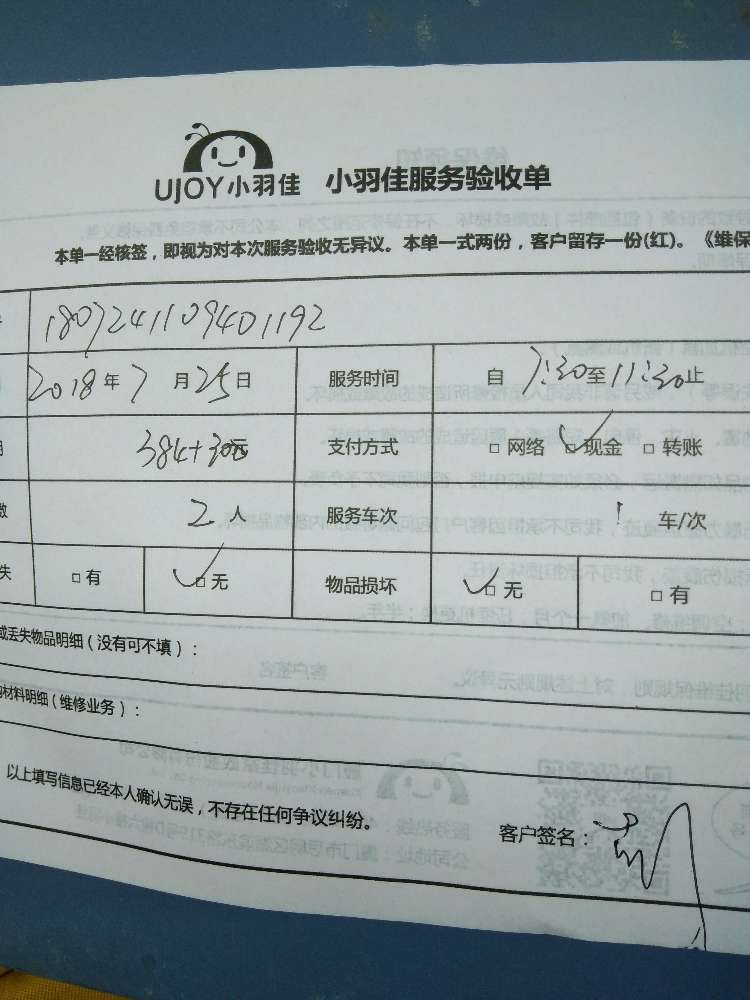 UJOY小羽佳 小羽佳服务验收单
本单一经核签，即视为对本次服务验收无异议。本单一式两份，客户留存一份(红)。《维保
1807241109401192
2018年7月25日 服务时间 自7:30至11:30止
384+30元 支付方式 □网络 □现金 □转账
数 2人 服务车次 1车/次
失 □有 □无 物品损坏 □无 □有
或丢失物品明细（没有可不填）：
材料明细（维修业务）：
以上填写信息已经本人确认无误，不存在任何争议纠纷。
客户签名：